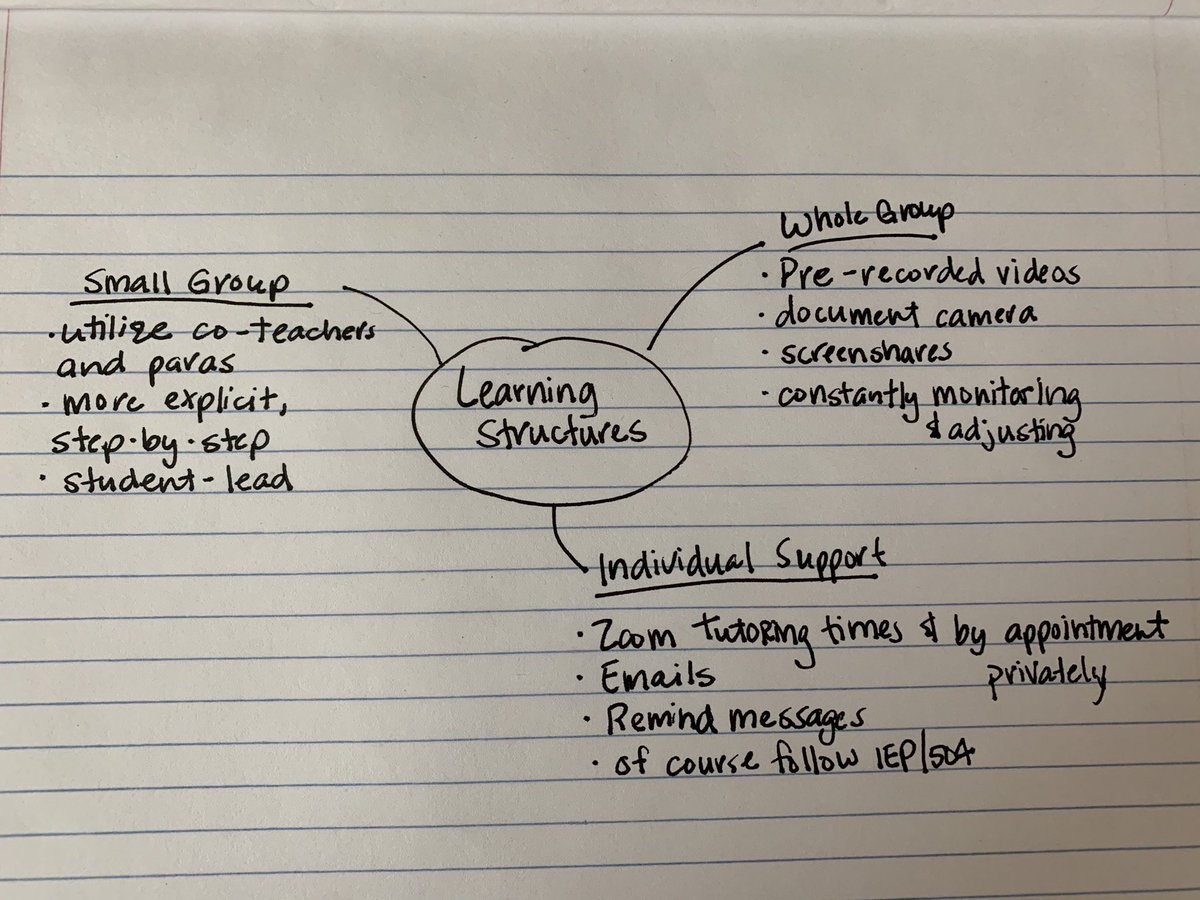 Learning
structures
Small Group
• utilize co-teachers
and paras
• more explicit,
step-by-step
• student-lead
Whole Group
• Pre-recorded videos
• document camera
• screenshares
• constantly monitoring
& adjusting
Individual Support
• Zoom tutoring times & by appointment
privately
• Emails
• Remind messages
• of course follow IEP/504